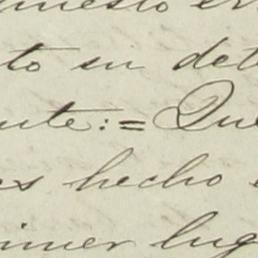 uesto en
to su det
nte:= Que
es hecho
imer lug